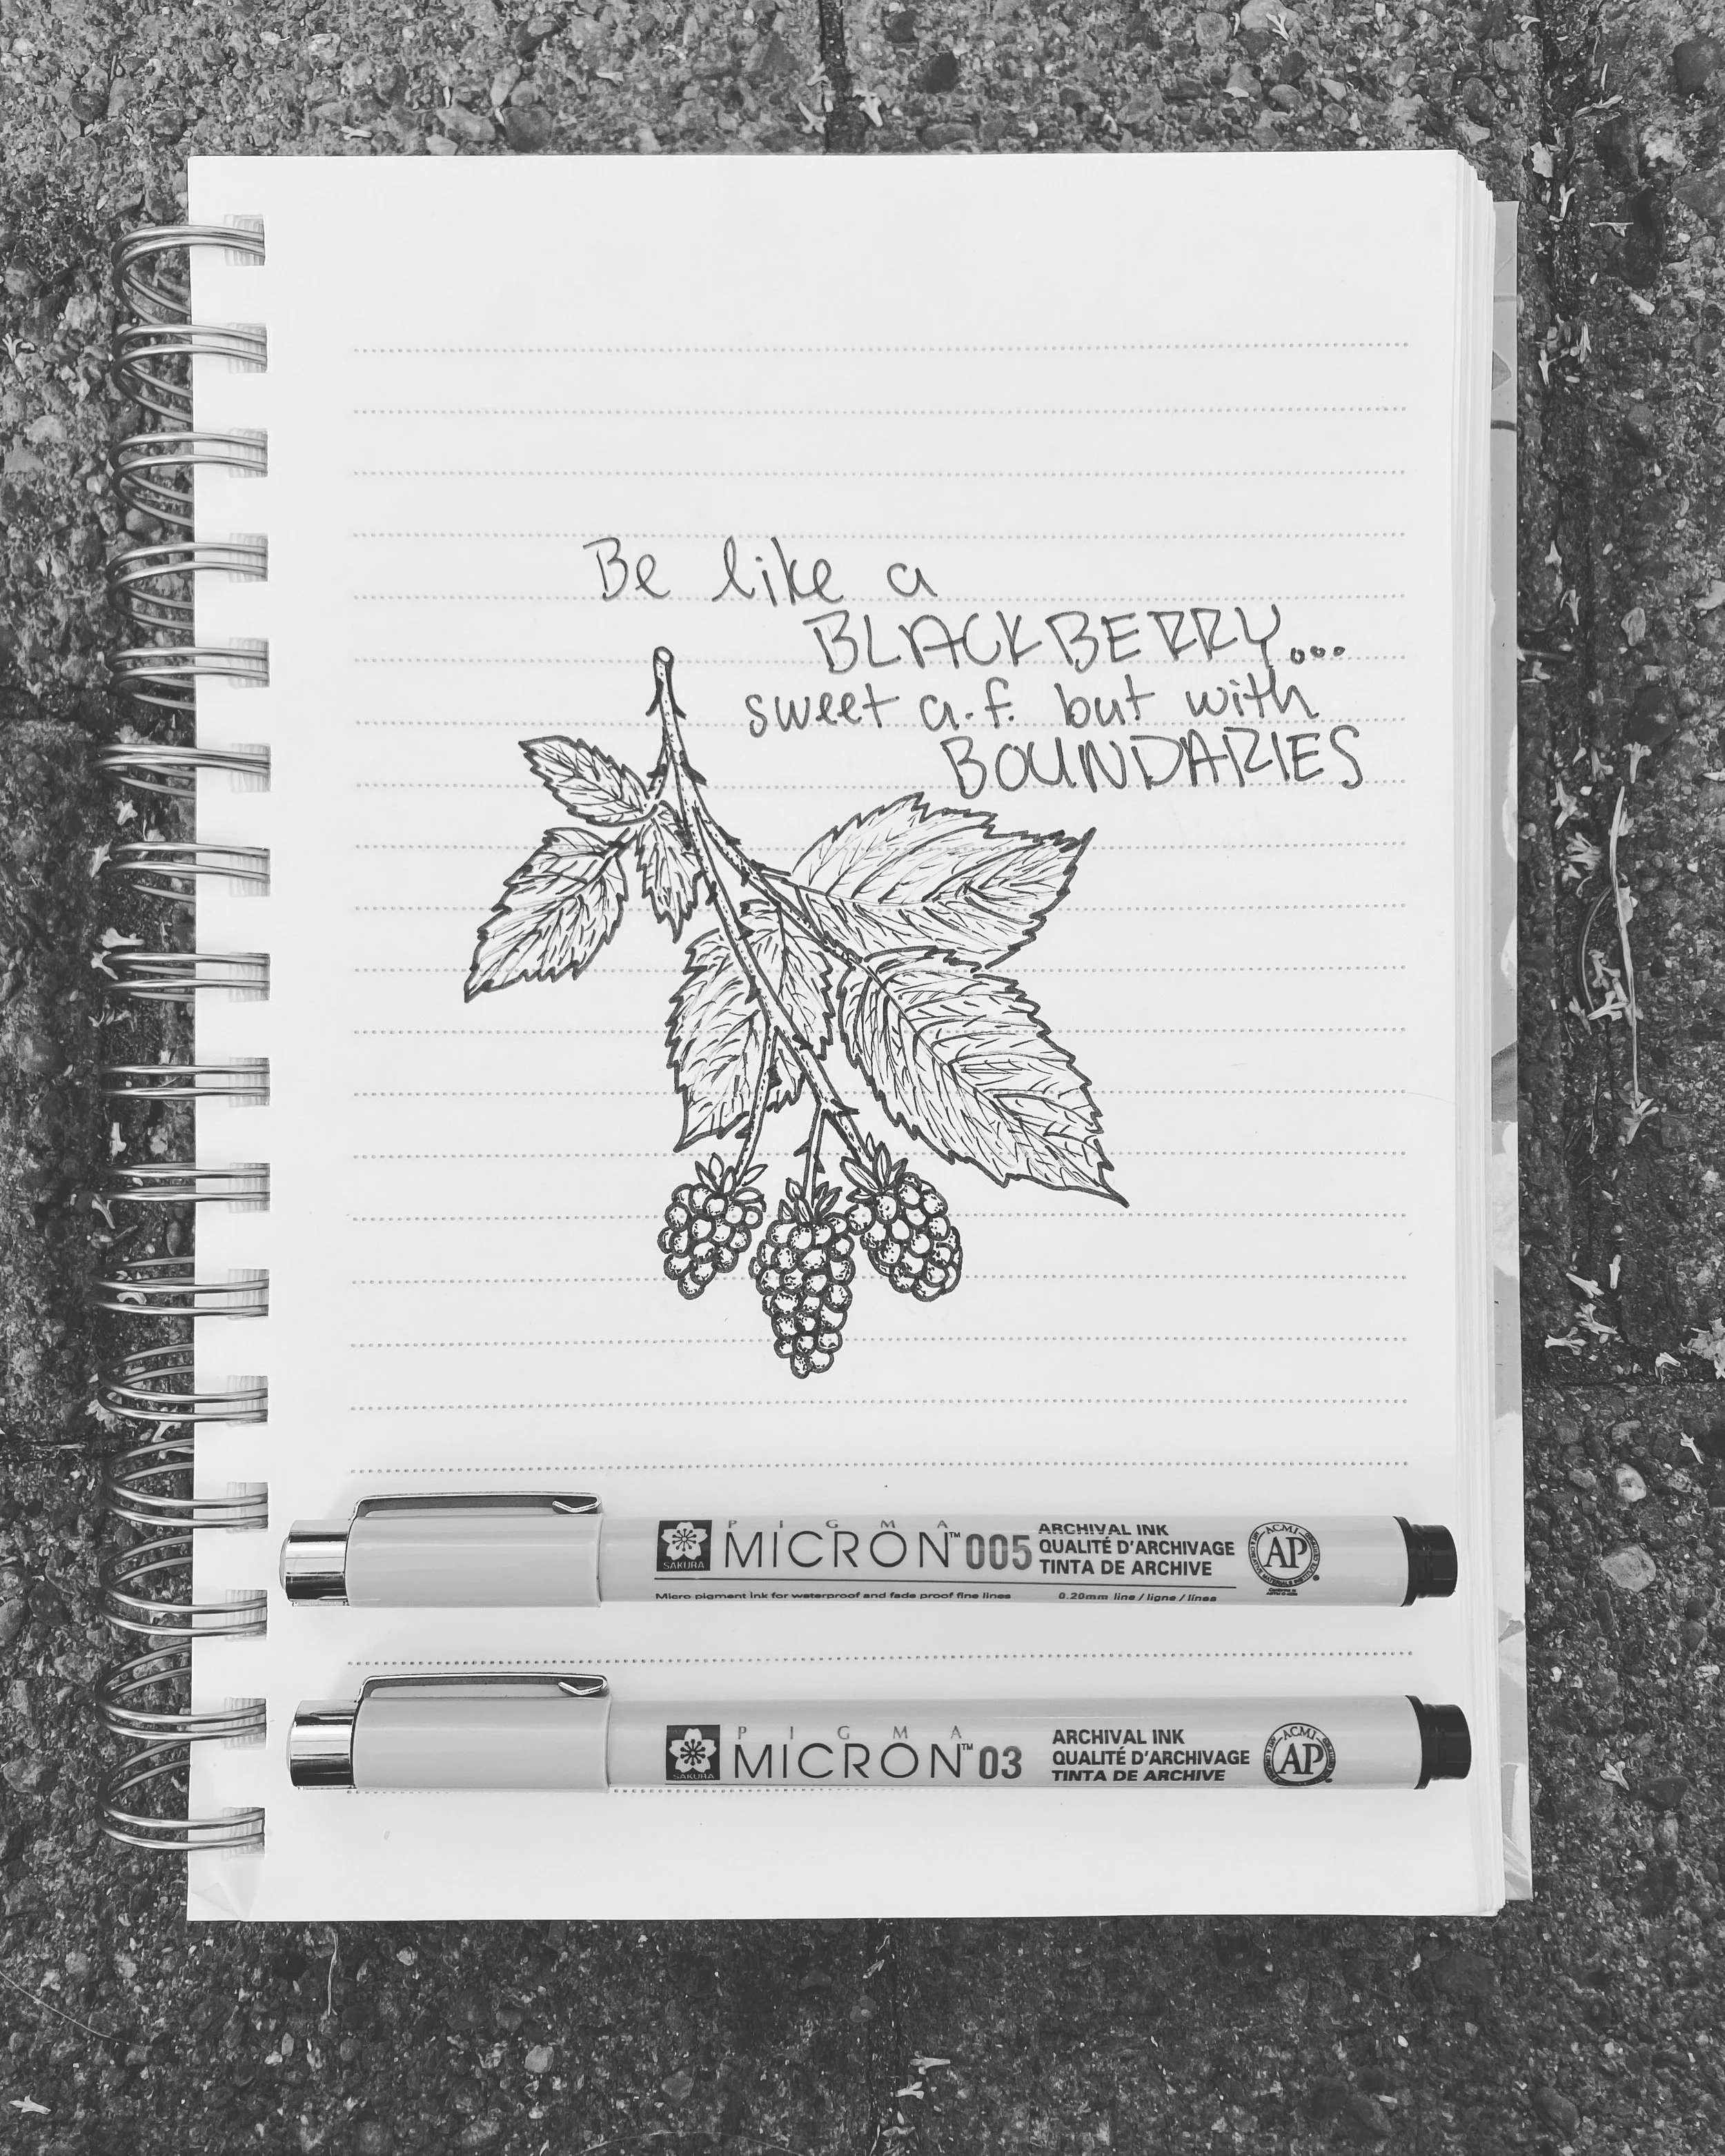 Be like a
BLACKBERRY...
sweet a.f. but with
BOUNDARIES
PIGMA
MICRON™ 005
SAKURA
ARCHIVAL INK
QUALITÉ D'ARCHIVAGE
TINTA DE ARCHIVE
ACMI
AP
Micro pigment ink for waterproof and fade proof fine lines
0.20mm line / ligne / línea
PIGMA
MICRON™ 03
SAKURA
ARCHIVAL INK
QUALITÉ D'ARCHIVAGE
TINTA DE ARCHIVE
ACMI
AP